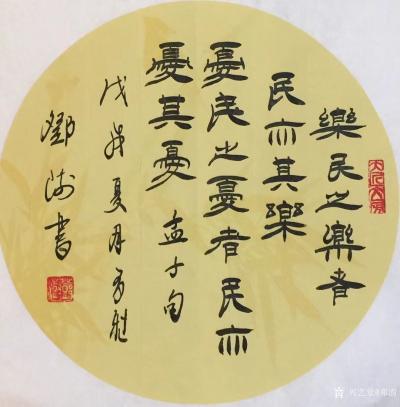 樂民之樂者
民亦其樂
憂民之憂者民亦
憂其憂 孟子句
戊戌夏月
鄧 書